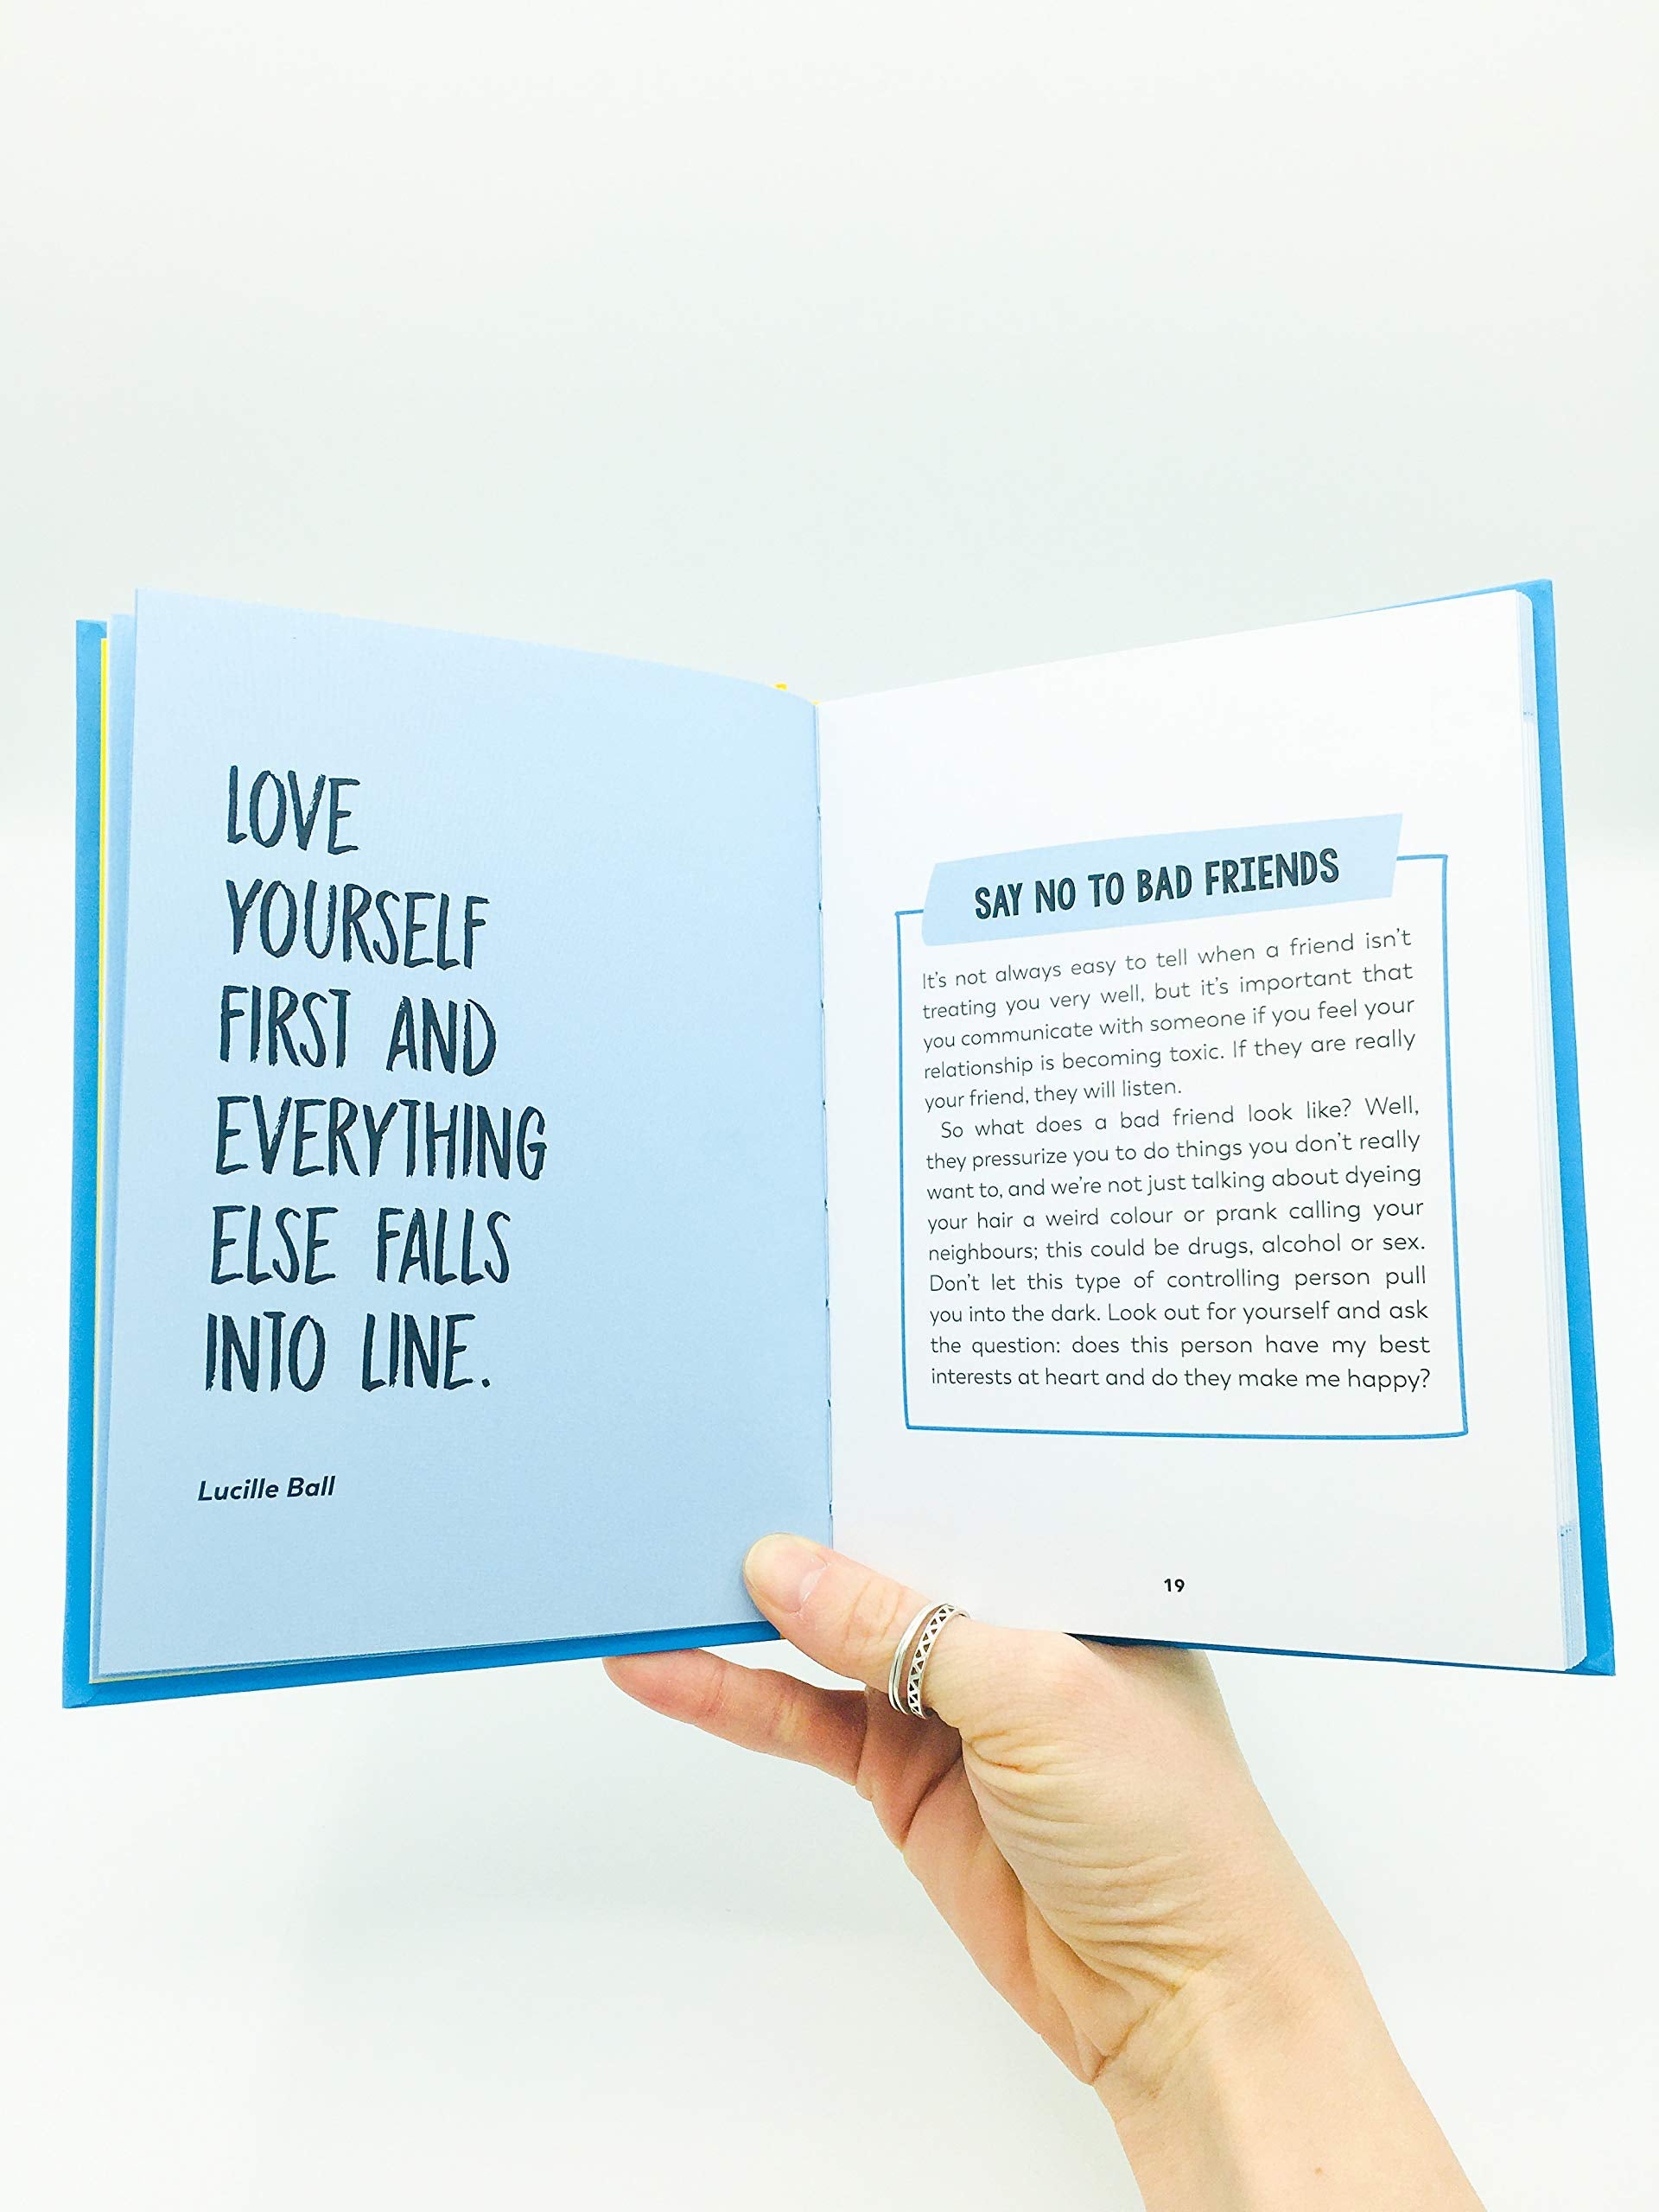 LOVE
YOURSELF
FIRST AND
EVERYTHING
ELSE FALLS
INTO LINE.
Lucille Ball
SAY NO TO BAD FRIENDS
It's not always easy to tell when a friend isn't
treating you very well, but it's important that
you communicate with someone if you feel your
relationship is becoming toxic. If they are really
your friend, they will listen.
So what does a bad friend look like? Well,
they pressurize you to do things you don't really
want to, and we're not just talking about dyeing
your hair a weird colour or prank calling your
neighbours; this could be drugs, alcohol or sex.
Don't let this type of controlling person pull
you into the dark. Look out for yourself and ask
the question: does this person have my best
interests at heart and do they make me happy?
19